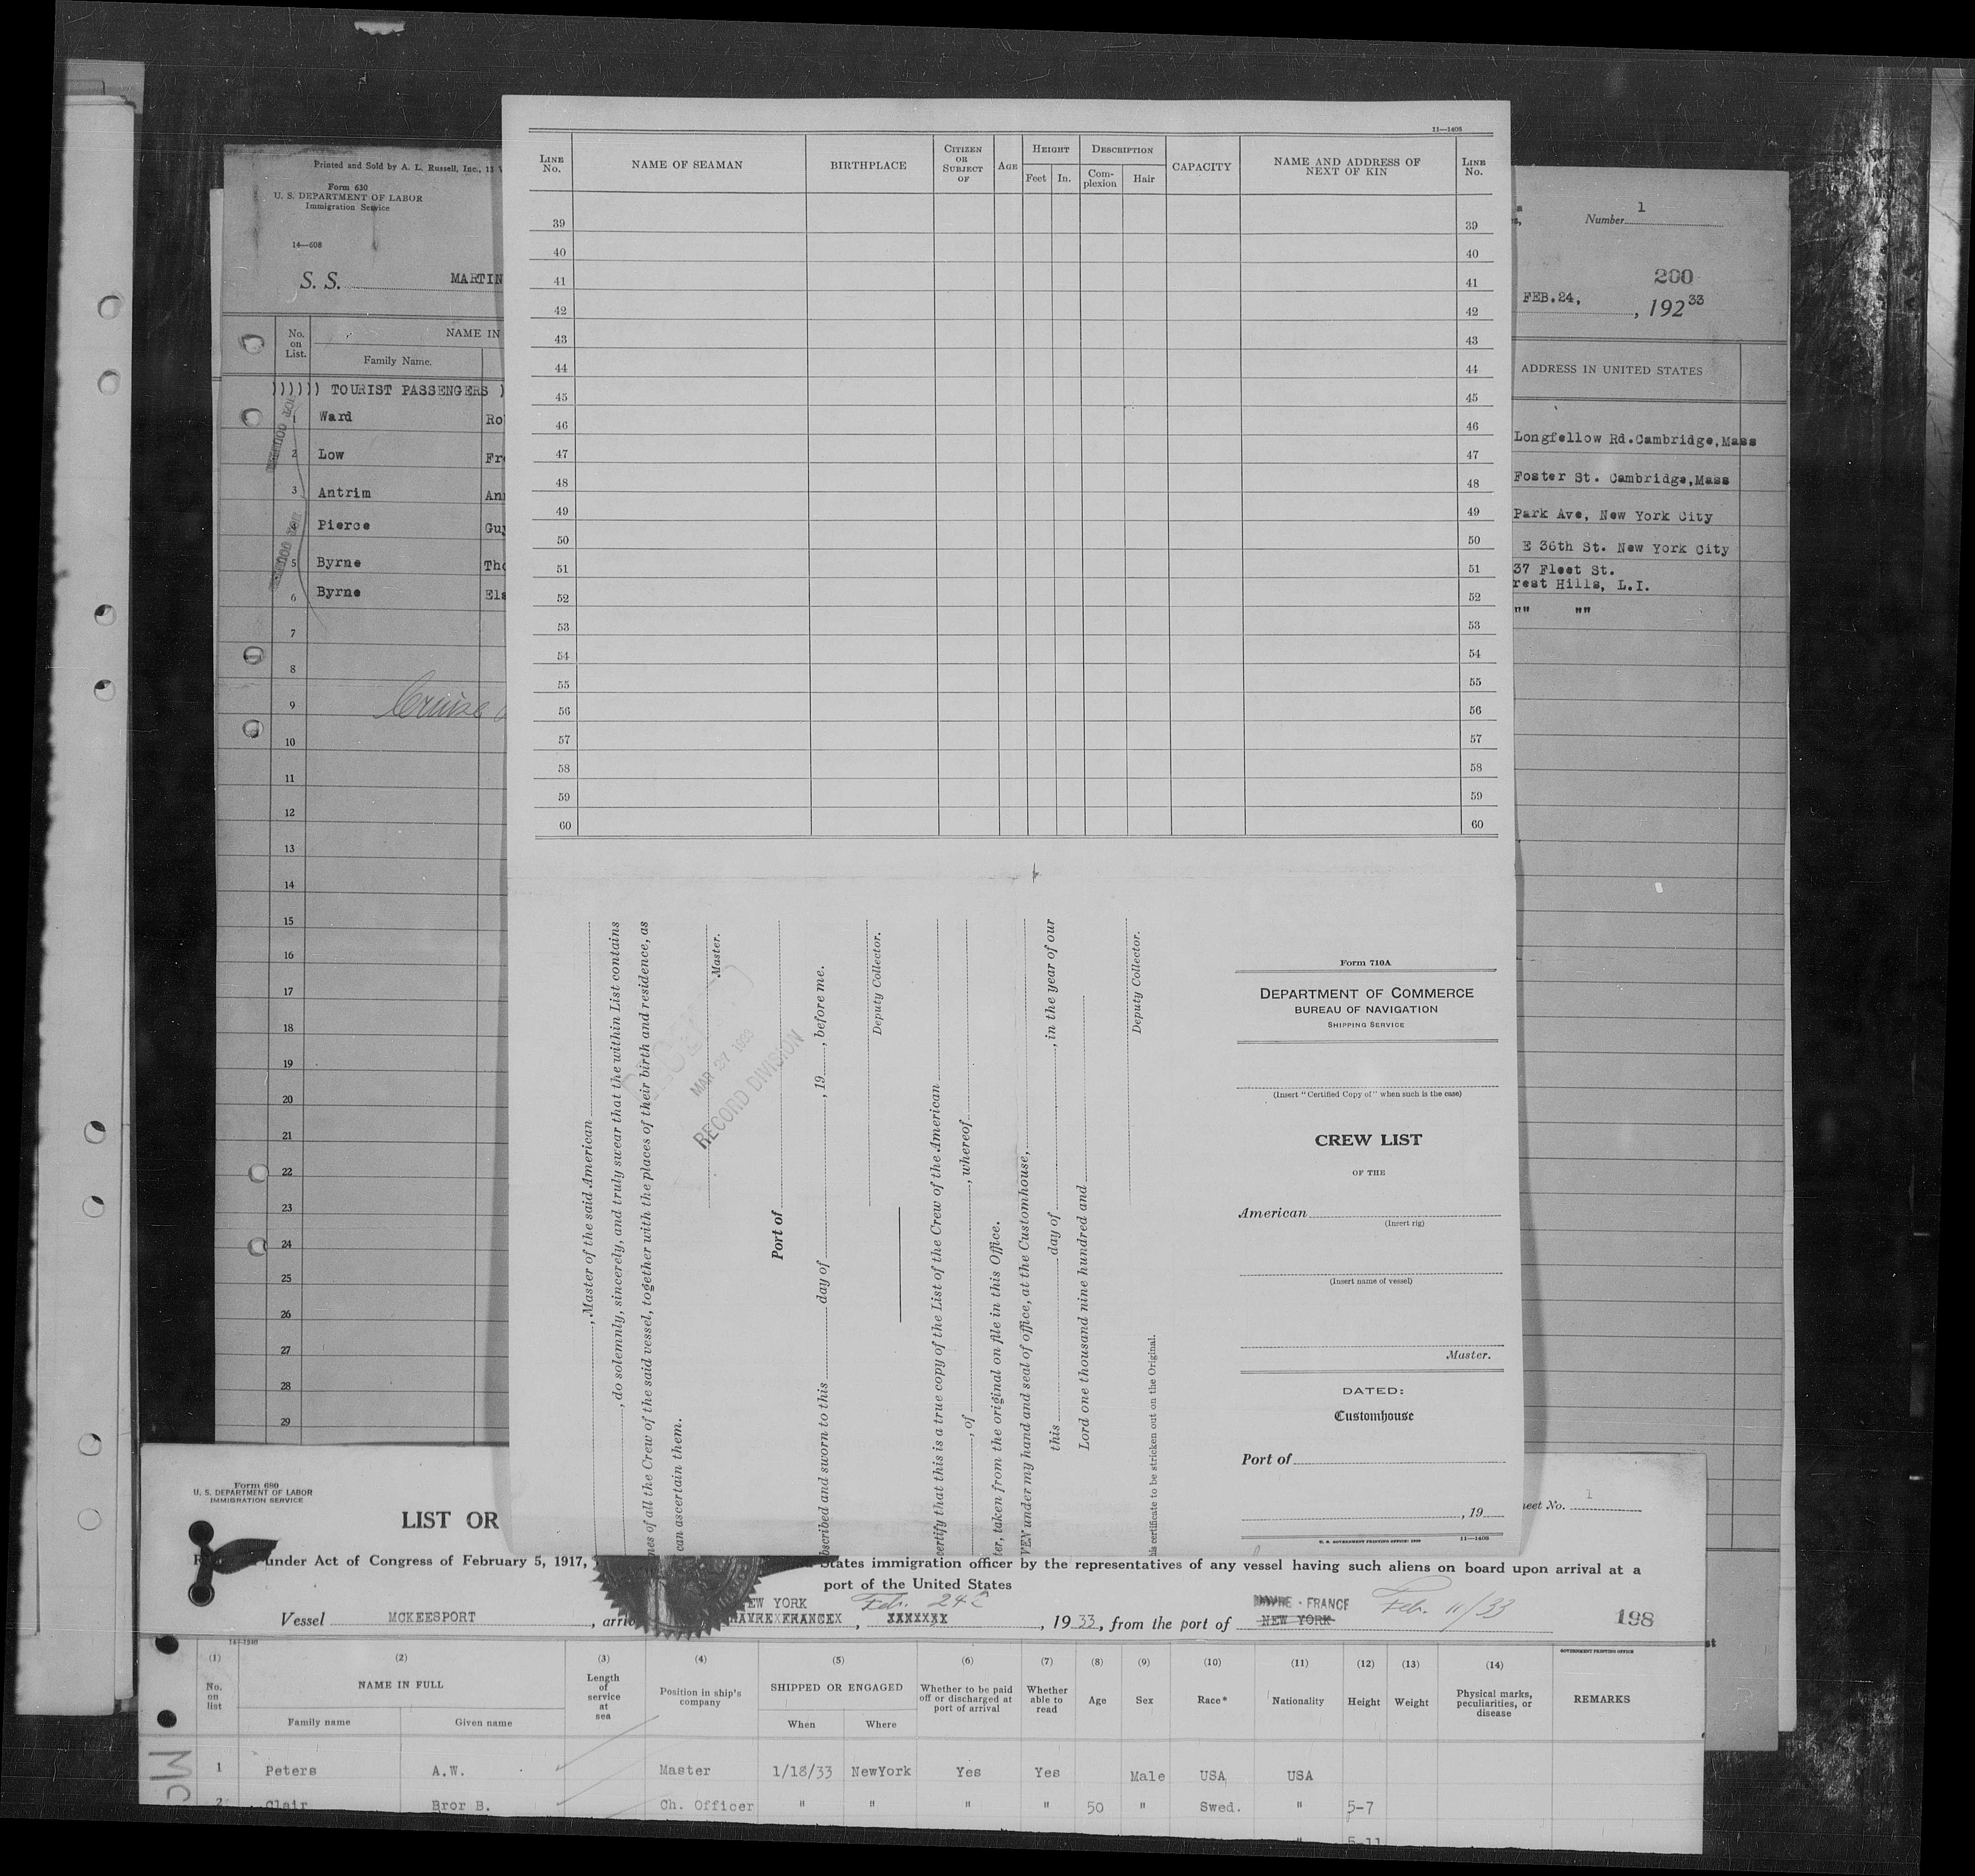 11—1408
LINE No.
NAME OF SEAMAN
BIRTHPLACE
CITIZEN OR SUBJECT OF
AGE
HEIGHT
Feet
In.
DESCRIPTION
Complexion
Hair
CAPACITY
NAME AND ADDRESS OF NEXT OF KIN
LINE No.
39 39
40 40
41 41
42 42
43 43
44 44
45 45
46 46
47 47
48 48
49 49
50 50
51 51
52 52
53 53
54 54
55 55
56 56
57 57
58 58
59 59
60 60
, Master of the said American
, do solemnly, sincerely, and truly swear that the within List contains
nes of all the Crew of the said vessel, together with the places of their birth and residence, as
can ascertain them.
Master.
Port of
bscribed and sworn to this day of , 19 , before me.
Deputy Collector.
certify that this is a true copy of the List of the Crew of the American
, of , whereof
ter, taken from the original on file in this Office.
VEN under my hand and seal of office, at the Customhouse,
this day of , in the year of our
Lord one thousand nine hundred and
Deputy Collector.
his certificate to be stricken out on the Original.
MAR 27 1933
RECORD DIVISION
Form 710A
DEPARTMENT OF COMMERCE
BUREAU OF NAVIGATION
SHIPPING SERVICE
(Insert "Certified Copy of" when such is the case)
CREW LIST
OF THE
American
(Insert rig)
(Insert name of vessel)
Master.
DATED:
Customhouse
Port of
, 19
U. S. GOVERNMENT PRINTING OFFICE: 1930 11—1408
Printed and Sold by A. L. Russell, Inc., 13
Form 630
U. S. DEPARTMENT OF LABOR
Immigration Service
14—608
S. S. MARTIN
No. on List.
NAME IN
Family Name.
)))))) TOURIST PASSENGERS )
1 Ward Ro
2 Low Fr
3 Antrim An
4 Pierce Guy
5 Byrne Tho
6 Byrne Els
7
8
9 Cruise
10
11
12
13
14
15
16
17
18
19
20
21
22
23
24
25
26
27
28
29
Number 1
200
FEB.24, , 192 33
ADDRESS IN UNITED STATES
Longfellow Rd.Cambridge,Mass
Foster St. Cambridge,Mass
Park Ave, New York City
E 36th St. New York City
37 Fleet St.
rest Hills, L.I.
"" ""
Form 680
U. S. DEPARTMENT OF LABOR
IMMIGRATION SERVICE
LIST OR
eet No. 1
under Act of Congress of February 5, 1917,
States immigration officer by the representatives of any vessel having such aliens on board upon arrival at a
port of the United States
EW YORK
Feb. 24
HAVRE - FRANCE
Feb. 11/33
Vessel MCKEESPORT , arri HAVREXFRANCEX , XXXXXXX , 19 33, from the port of NEW YORK
198
14—1240
GOVERNMENT PRINTING OFFICE
(1) (2) (3) (4) (5) (6) (7) (8) (9) (10) (11) (12) (13) (14)
No. on list
NAME IN FULL
Family name
Given name
Length of service at sea
Position in ship's company
SHIPPED OR ENGAGED
When
Where
Whether to be paid off or discharged at port of arrival
Whether able to read
Age
Sex
Race*
Nationality
Height
Weight
Physical marks, peculiarities, or disease
REMARKS
1 Peters A.W. Master 1/18/33 NewYork Yes Yes Male USA USA
2 Clair Bror B. Ch. Officer " " " " 50 " Swed. " 5-7
" 5-11
Mc